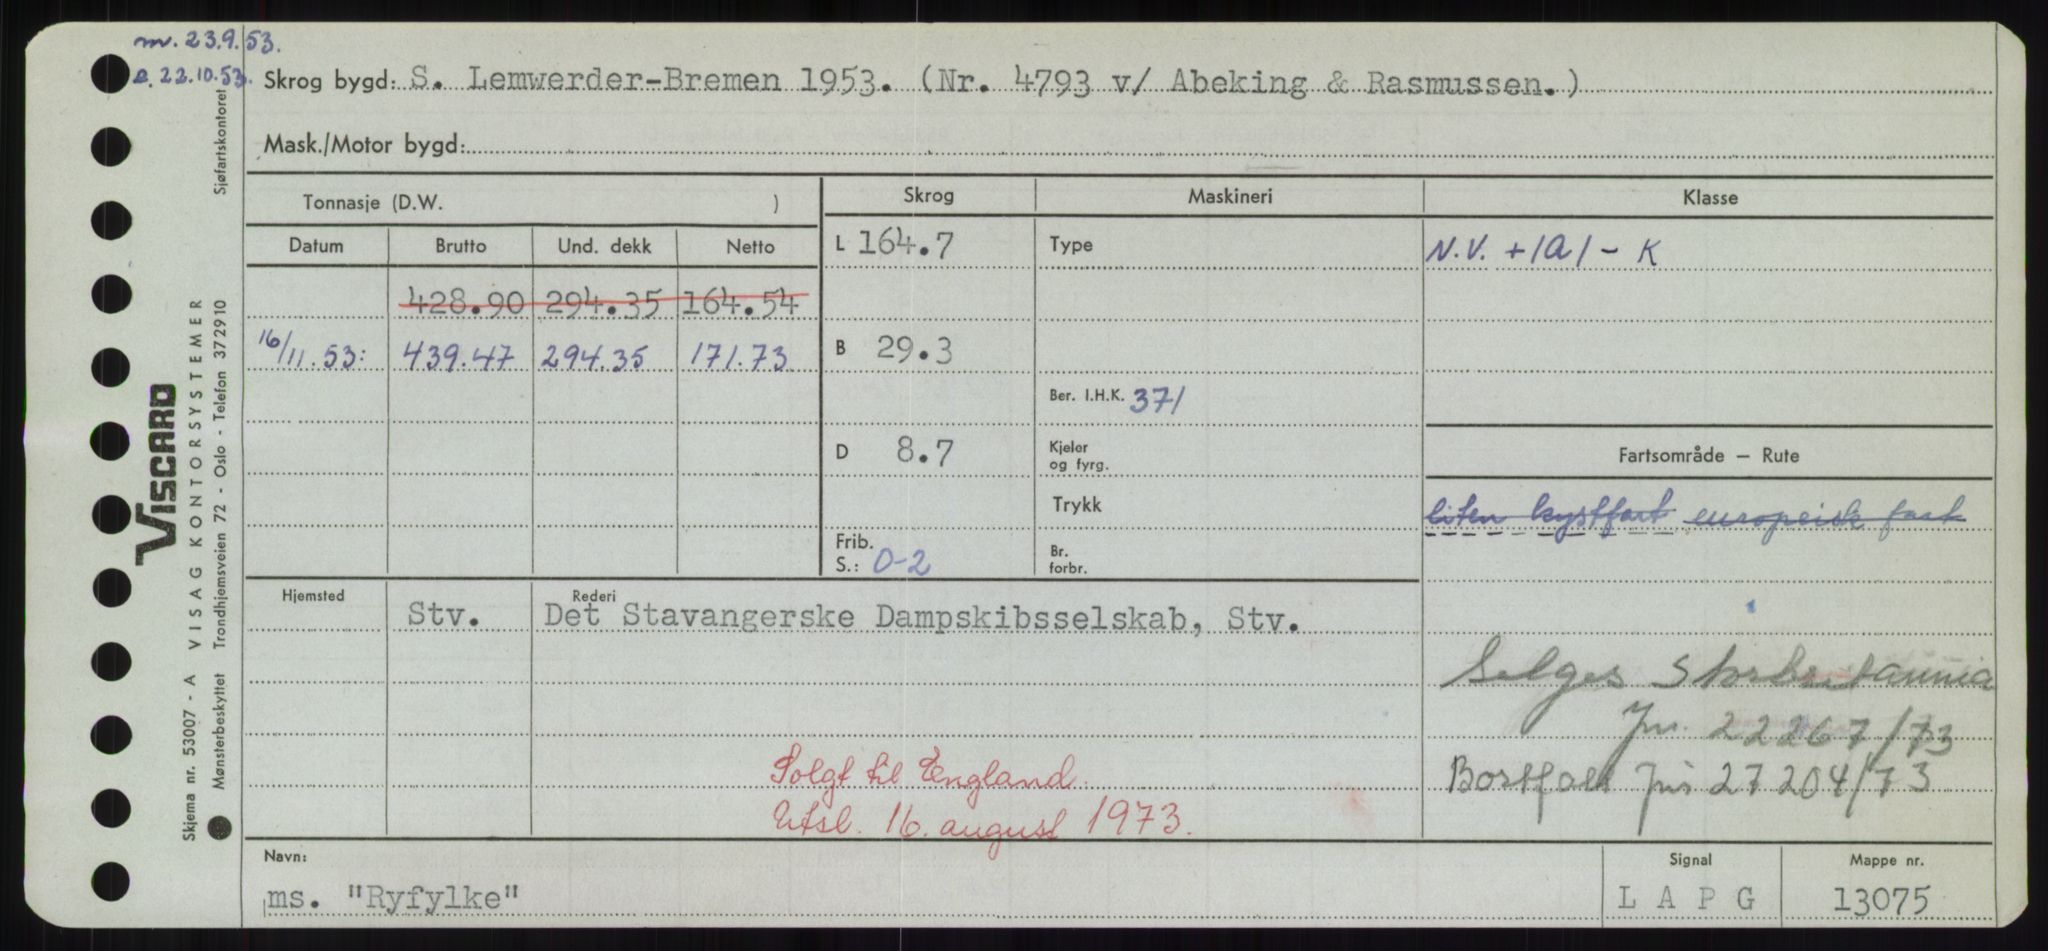 m. 23.9.53.
e. 22.10.53.
Skrog bygd: S. Lemwerder-Bremen 1953. (Nr. 4793 v/ Abeking & Rasmussen.)
Mask./Motor bygd:
Tonnasje (D.W. )
Skrog Maskineri Klasse
Datum Brutto Und. dekk Netto
L 164.7 Type N.V. +1A1 - K
428.90 294.35 164.54
16/11.53: 439.47 294.35 171.73
B 29.3
Ber. I.H.K. 371
D 8.7
Kjeler og fyrg.
Fartsområde — Rute
Trykk
liten kystfart europeisk fart
Frib.
S.: 0-2
Br. forbr.
Hjemsted Rederi
Stv. Det Stavangerske Dampskibsselskab, Stv.
Selges Storbritannia
Jnr. 22267/73
Solgt til England.
Bortfalt Jnr 27204/73
Utsl. 16. august 1973.
Navn: Signal Mappe nr.
ms. "Ryfylke" L A P G 13075
Sjøfartskontoret
VISCARD
VISAG KONTORSYSTEMER
Trondhjemsveien 72 - Oslo - Telefon 372910
Skjema nr. 53007 - A
Mønsterbeskyttet